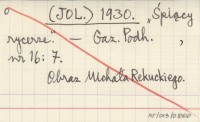 (JOL.) 1930. „Śpiący
rycerze". — Gaz. Podh. ,
nr 16: 7.
Obraz Michała Rekuckiego.